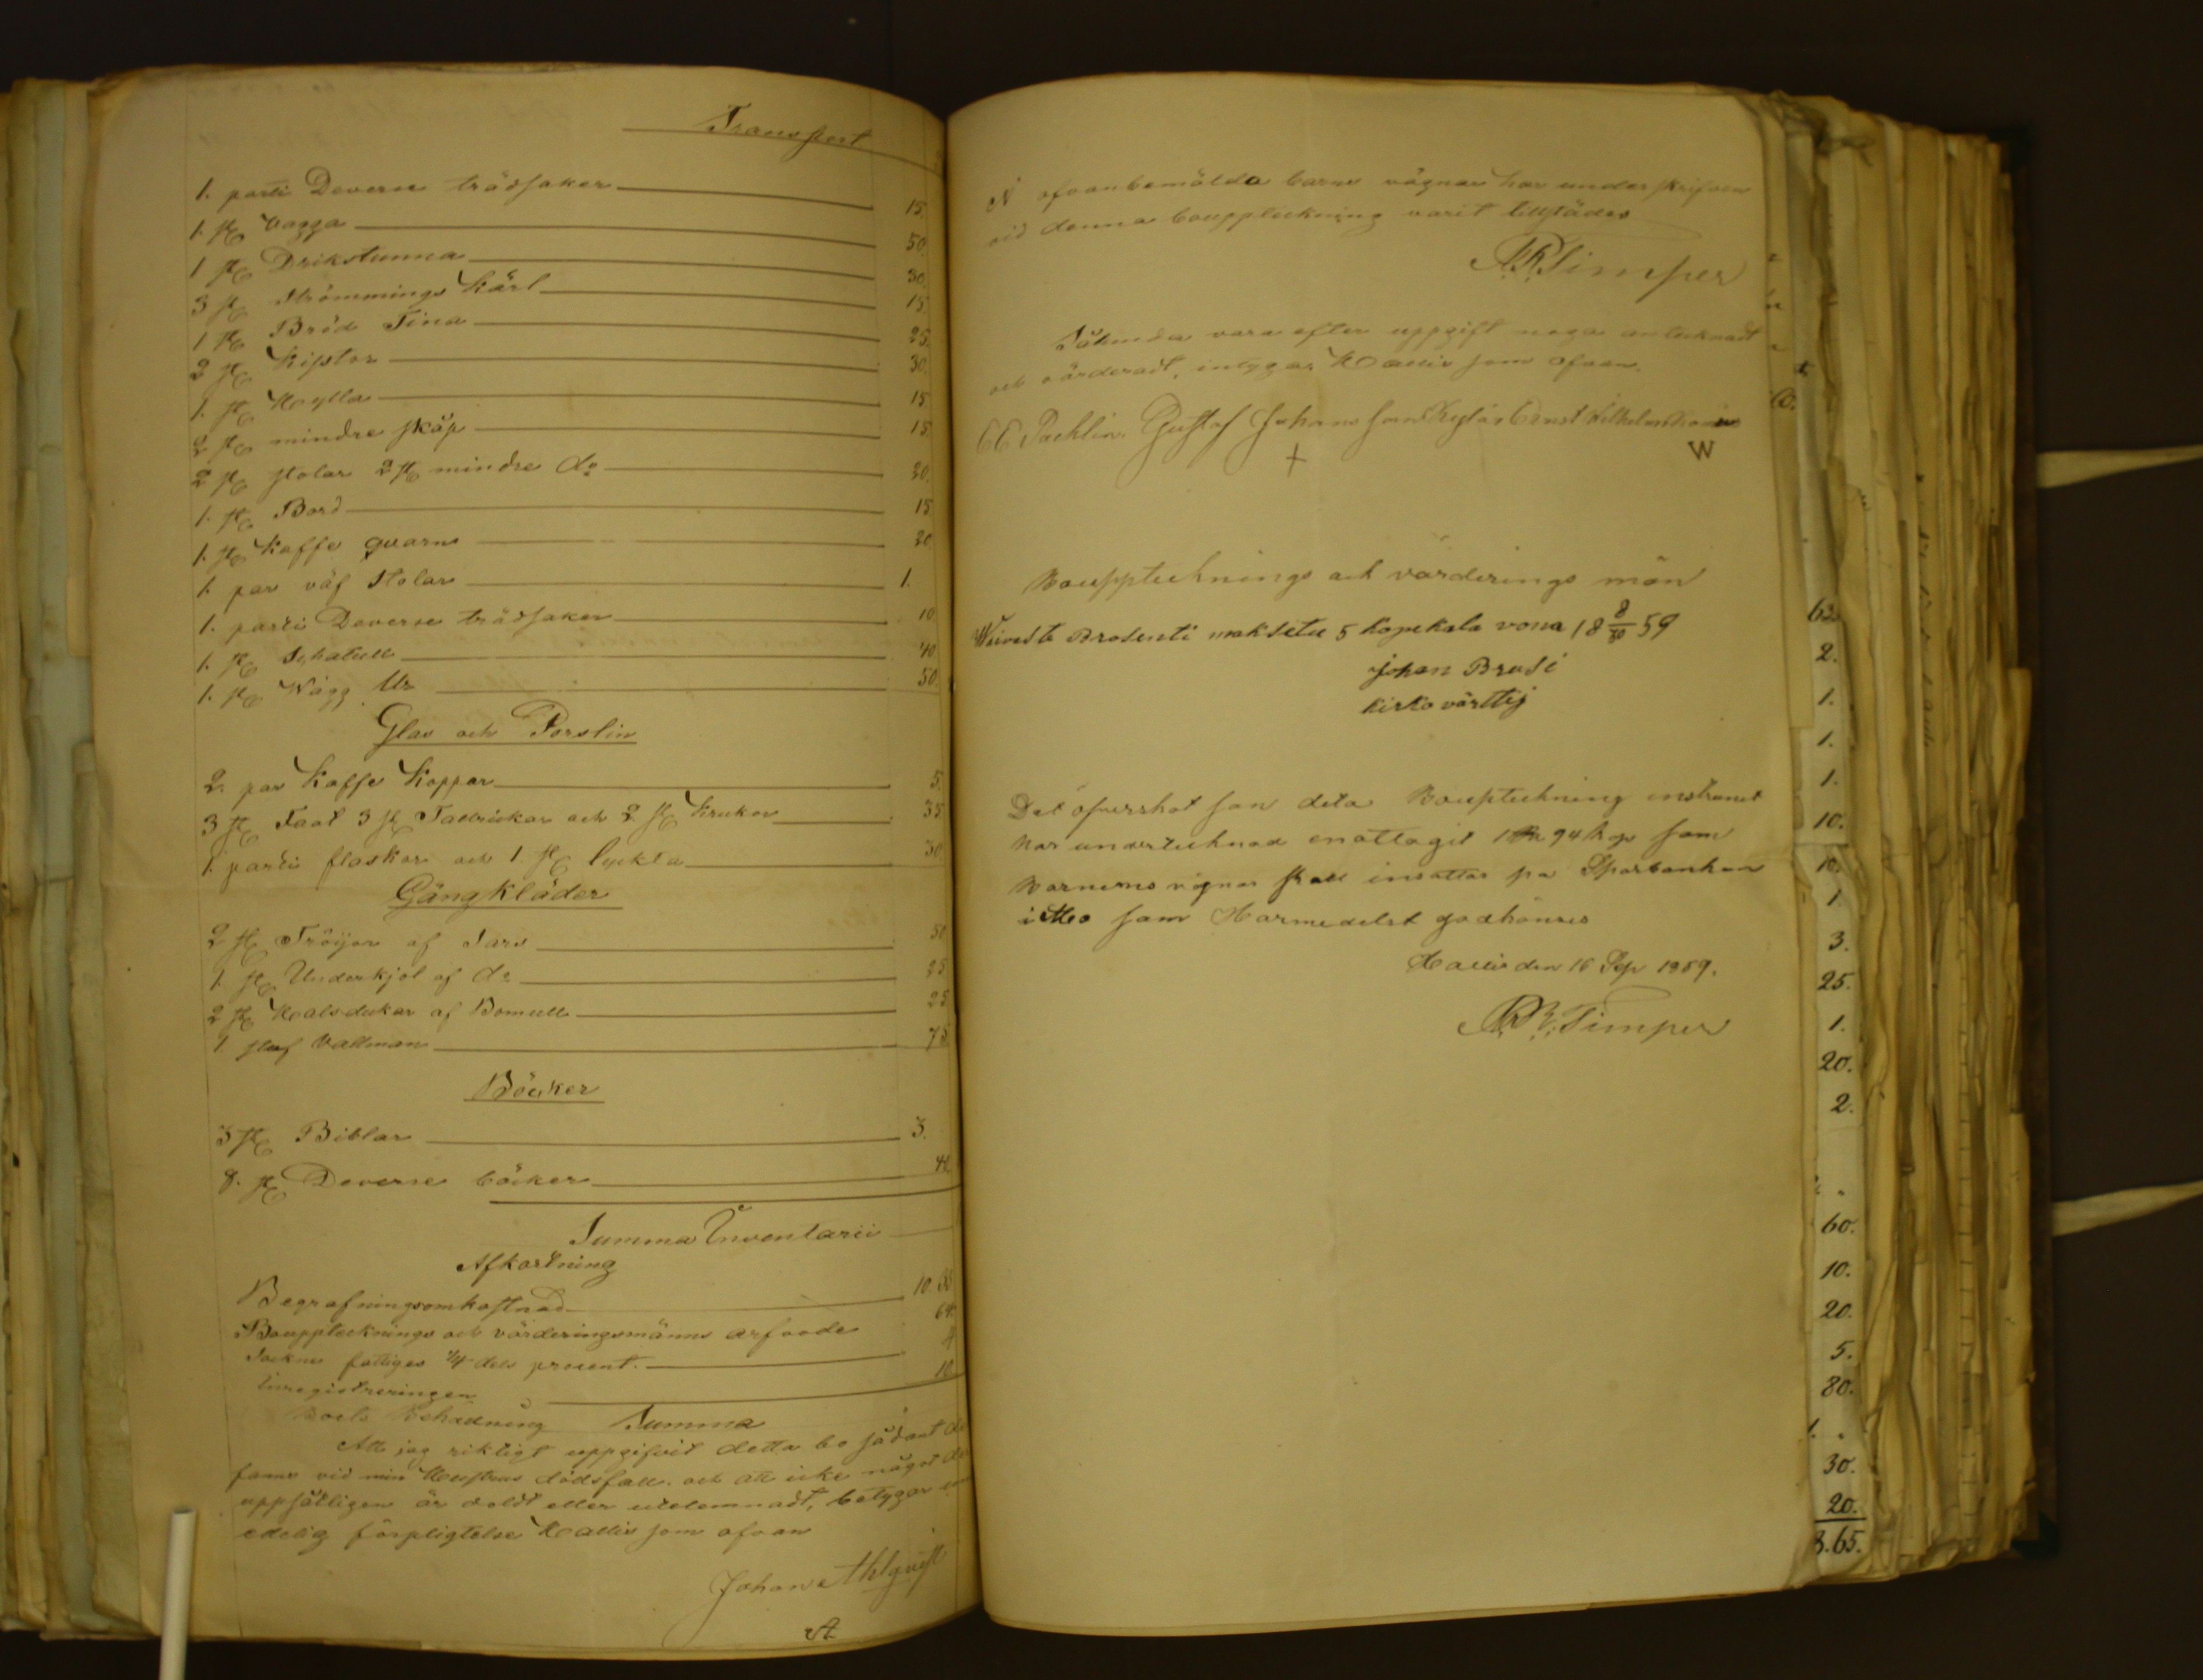 Transport
1. parti Deverse trädsaker 15.
1. st Vagga 50.
1 st Drikstunna 30.
3 st Strömmings kärl 15.
1 st Bröd Tina 25.
2 st Kistor 30.
1. st Hylla 15
2 st mindre skåp 15.
2 st stolar 2 st mindre do 20.
1. st Bord 15
1. st Kaffe quarn 20
1. par väf stolar 1.
1. parti Deverse trädsaker 10
1. st Schatull 40
1. st Wägg Ur 50.
Glas och Porslin
2. par Kaffe Koppar 5.
3 st Faat 3 st Tallrickar och 2 st Krukor 35
1. parti flaskor och 1. st lyckta 30.
Gångkläder
2 st Tröijor af Sars 50
1. st Underkjol af do 25
2 st Halsdukar af Bomull 25
1. stuf Vallman 75
Böcker
3 st Biblar 3.
8. st Deverse böcker 40.
Summa Inventarii
Afkortning
Begrafningsomkostnad 10.
Bouppteknings och värderingsmäns arfvode 64.
Sockne fattiges 1/4 dels procent. 4
Inregistreringen 10
Boets Behållning Summa
Att jag riktigt uppgifvit detta bo sådant de
fanns vid min Hustrus dödsfall. och att icke något de
uppsåtligen är doldt eller utelemnadt, betygar
edelig förpligtelse Hallis som ofvan
Johan Ahlqvist
A.
ofvanbemälda barns vägnar har underskrifven
vid denna bouppteckning varit tillstädes
A. R. Timper
Sålunda vara efter uppgift noga antecknadt
och värderadt, intygar Hallis som ofvan.
C E Packlin. Gustaf Johansson Ernst Vilhelm
+ W
Boupptecknings och värderings män
Waiveste Brosenti maksetu 5 kopekala vona 18 8/30 59
Johan Brusi
kirko värttij
Det öfverskot som deta Bouptekning
har undertecknad emottagit 1 94 kop som
Barnens vägnar skall insattas på Sparbanken
i Åbo som Harmedelst godkännes
Hallis den 16 Sep 1859.
A. R. Timper
62.
2.
1.
1.
1.
10.
10.
1.
3.
25.
1.
20.
2.
60.
10.
20.
5.
80.
1.
30.
20.
8.65.